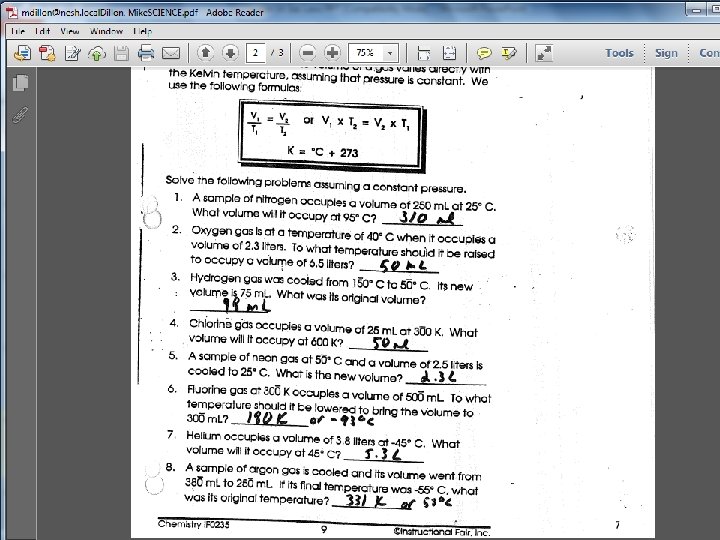 mdillon@nesh.local.Dillon, MikeSCIENCE.pdf - Adobe Reader
File Edit View Window Help
2 / 3 75% Tools Sign Com
the Kelvin temperature, assuming that pressure is constant. We
use the following formulas:
V₁/T₁ = V₂/T₂ or V₁ x T₂ = V₂ x T₁
K = °C + 273
Solve the following problems assuming a constant pressure.
1. A sample of nitrogen occupies a volume of 250 mL at 25° C.
What volume will it occupy at 95° C? 310 mL
2. Oxygen gas is at a temperature of 40° C when it occupies a
volume of 2.3 liters. To what temperature should it be raised
to occupy a volume of 6.5 liters? 50 mL
3. Hydrogen gas was cooled from 150° C to 50° C. Its new
volume is 75 mL. What was its original volume?
99 mL
4. Chlorine gas occupies a volume of 25 mL at 300 K. What
volume will it occupy at 600 K? 50 mL
5. A sample of neon gas at 50° C and a volume of 2.5 liters is
cooled to 25° C. What is the new volume? 2.3 L
6. Fluorine gas at 300 K occupies a volume of 500 mL. To what
temperature should it be lowered to bring the volume to
300 mL? 180 K or -93°C
7. Helium occupies a volume of 3.8 liters at -45° C. What
volume will it occupy at 45° C? 5.3 L
8. A sample of argon gas is cooled and its volume went from
380 mL to 250 mL. If its final temperature was -55° C, what
was its original temperature? 331 K or 58°C
Chemistry IF0235 9 ©Instructional Fair, Inc. 7